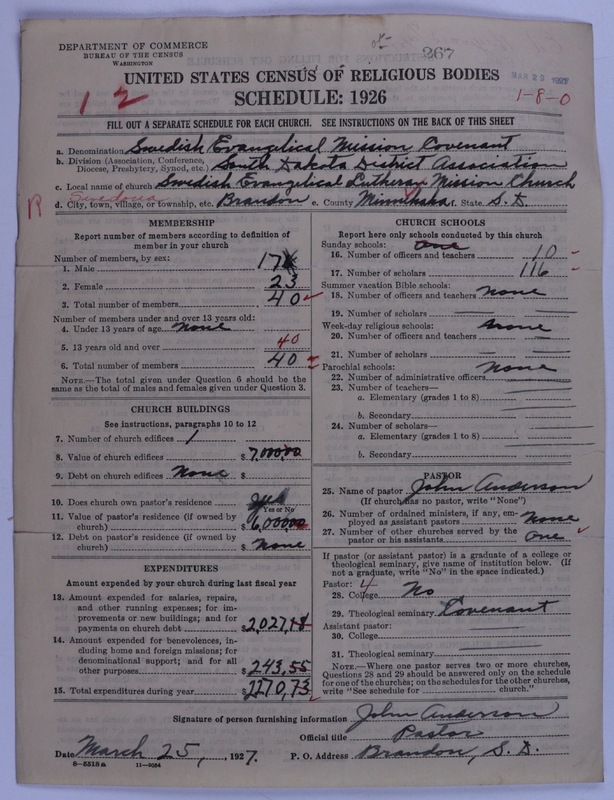 DEPARTMENT OF COMMERCE
BUREAU OF THE CENSUS
WASHINGTON
267
MAR 28 1927
UNITED STATES CENSUS OF RELIGIOUS BODIES
SCHEDULE: 1926
1 2
1-8-0
FILL OUT A SEPARATE SCHEDULE FOR EACH CHURCH. SEE INSTRUCTIONS ON THE BACK OF THIS SHEET
a. Denomination Swedish Evangelical Mission Covenant
b. Division (Association, Conference, Diocese, Presbytery, Synod, etc.) South Dakota District Association
c. Local name of church Swedish Evangelical Lutheran Mission Church
R
d. City, town, village, or township, etc. Brandon e. County Minnehaha f. State S. D.
MEMBERSHIP
Report number of members according to definition of
member in your church
Number of members, by sex:
1. Male 17
2. Female 23
3. Total number of members 40
Number of members under and over 13 years old:
4. Under 13 years of age none
5. 13 years old and over 40
6. Total number of members 40
NOTE.—The total given under Question 6 should be the
same as the total of males and females given under Question 3.
CHURCH BUILDINGS
See instructions, paragraphs 10 to 12
7. Number of church edifices 1
8. Value of church edifices $7,000.00
9. Debt on church edifices None $
10. Does church own pastor's residence Yes
Yes or No
11. Value of pastor's residence (if owned by
church) $6,000.00
12. Debt on pastor's residence (if owned by
church) $ None
EXPENDITURES
Amount expended by your church during last fiscal year
13. Amount expended for salaries, repairs,
and other running expenses; for im-
provements or new buildings; and for
payments on church debt $2,027,18
14. Amount expended for benevolences, in-
cluding home and foreign missions; for
denominational support; and for all
other purposes $243,55
15. Total expenditures during year $2270,73
CHURCH SCHOOLS
Report here only schools conducted by this church
Sunday schools: One
16. Number of officers and teachers 10
17. Number of scholars 116
Summer vacation Bible schools:
18. Number of officers and teachers None
19. Number of scholars
Week-day religious schools: None
20. Number of officers and teachers
21. Number of scholars
Parochial schools: None
22. Number of administrative officers
23. Number of teachers—
a. Elementary (grades 1 to 8)
b. Secondary
24. Number of scholars—
a. Elementary (grades 1 to 8)
b. Secondary
PASTOR
25. Name of pastor John Anderson
(If church has no pastor, write "None")
26. Number of ordained ministers, if any, em-
ployed as assistant pastors None
27. Number of other churches served by the
pastor or his assistants One
If pastor (or assistant pastor) is a graduate of a college or
theological seminary, give name of institution below. (If
not a graduate, write "No" in the space indicated.)
Pastor: 4
28. College No
29. Theological seminary Covenant
Assistant pastor:
30. College
31. Theological seminary
NOTE.—Where one pastor serves two or more churches,
Questions 28 and 29 should be answered only on the schedule
for one of the churches; on the schedules for the other churches,
write "See schedule for church."
Signature of person furnishing information John Anderson
Official title Pastor
Date March 25, 1927. P. O. Address Brandon, S. D.
8—5518a 11—9084